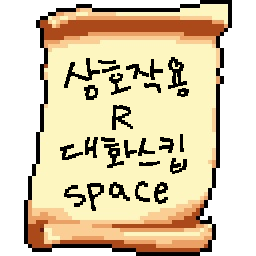 상호작용
R
대화스킵
space